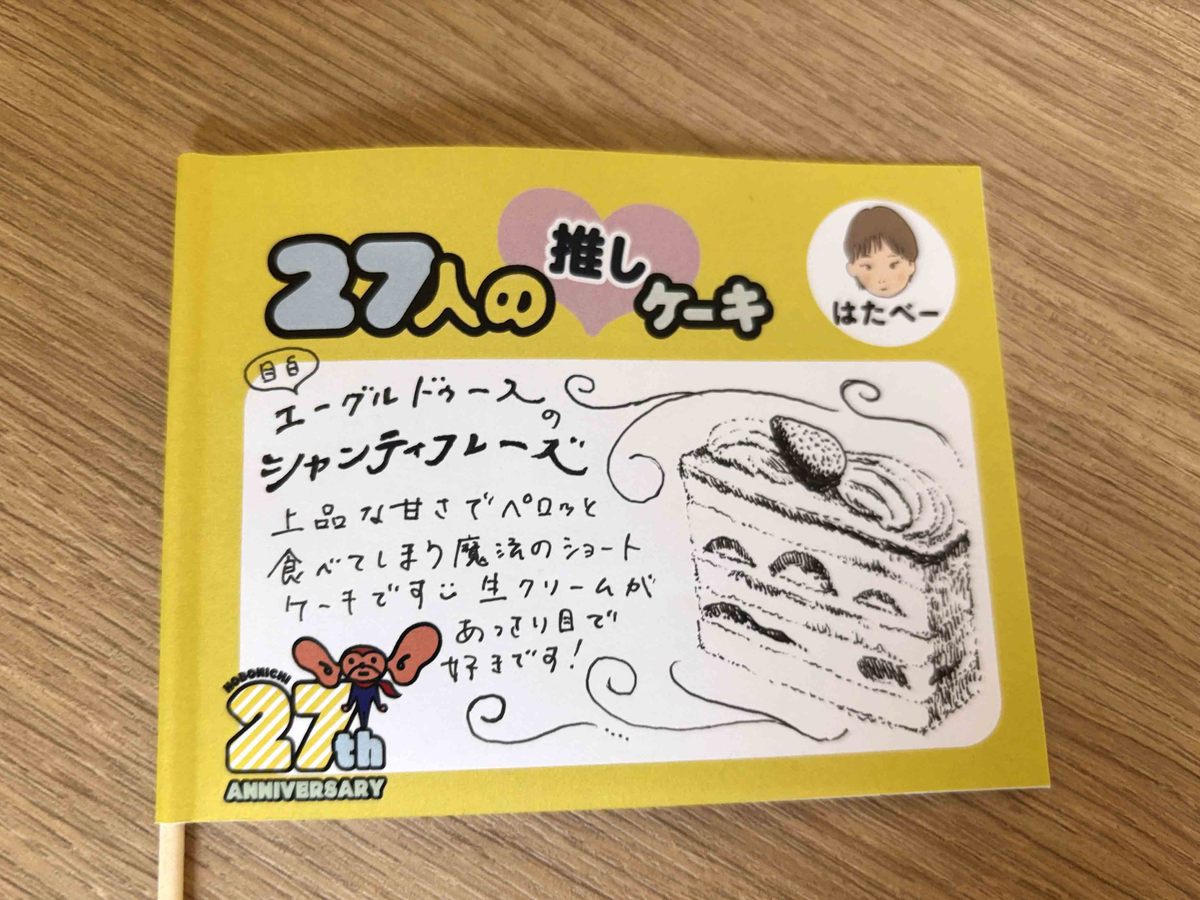 27人の推しケーキ
はたべー
目白
エーグルドゥースの
シャンティフレーズ
上品な甘さでペロッと
食べてしまう魔法のショート
ケーキです 生クリームが
あっさり目で
好きです!
HOBONICHI
27th
ANNIVERSARY